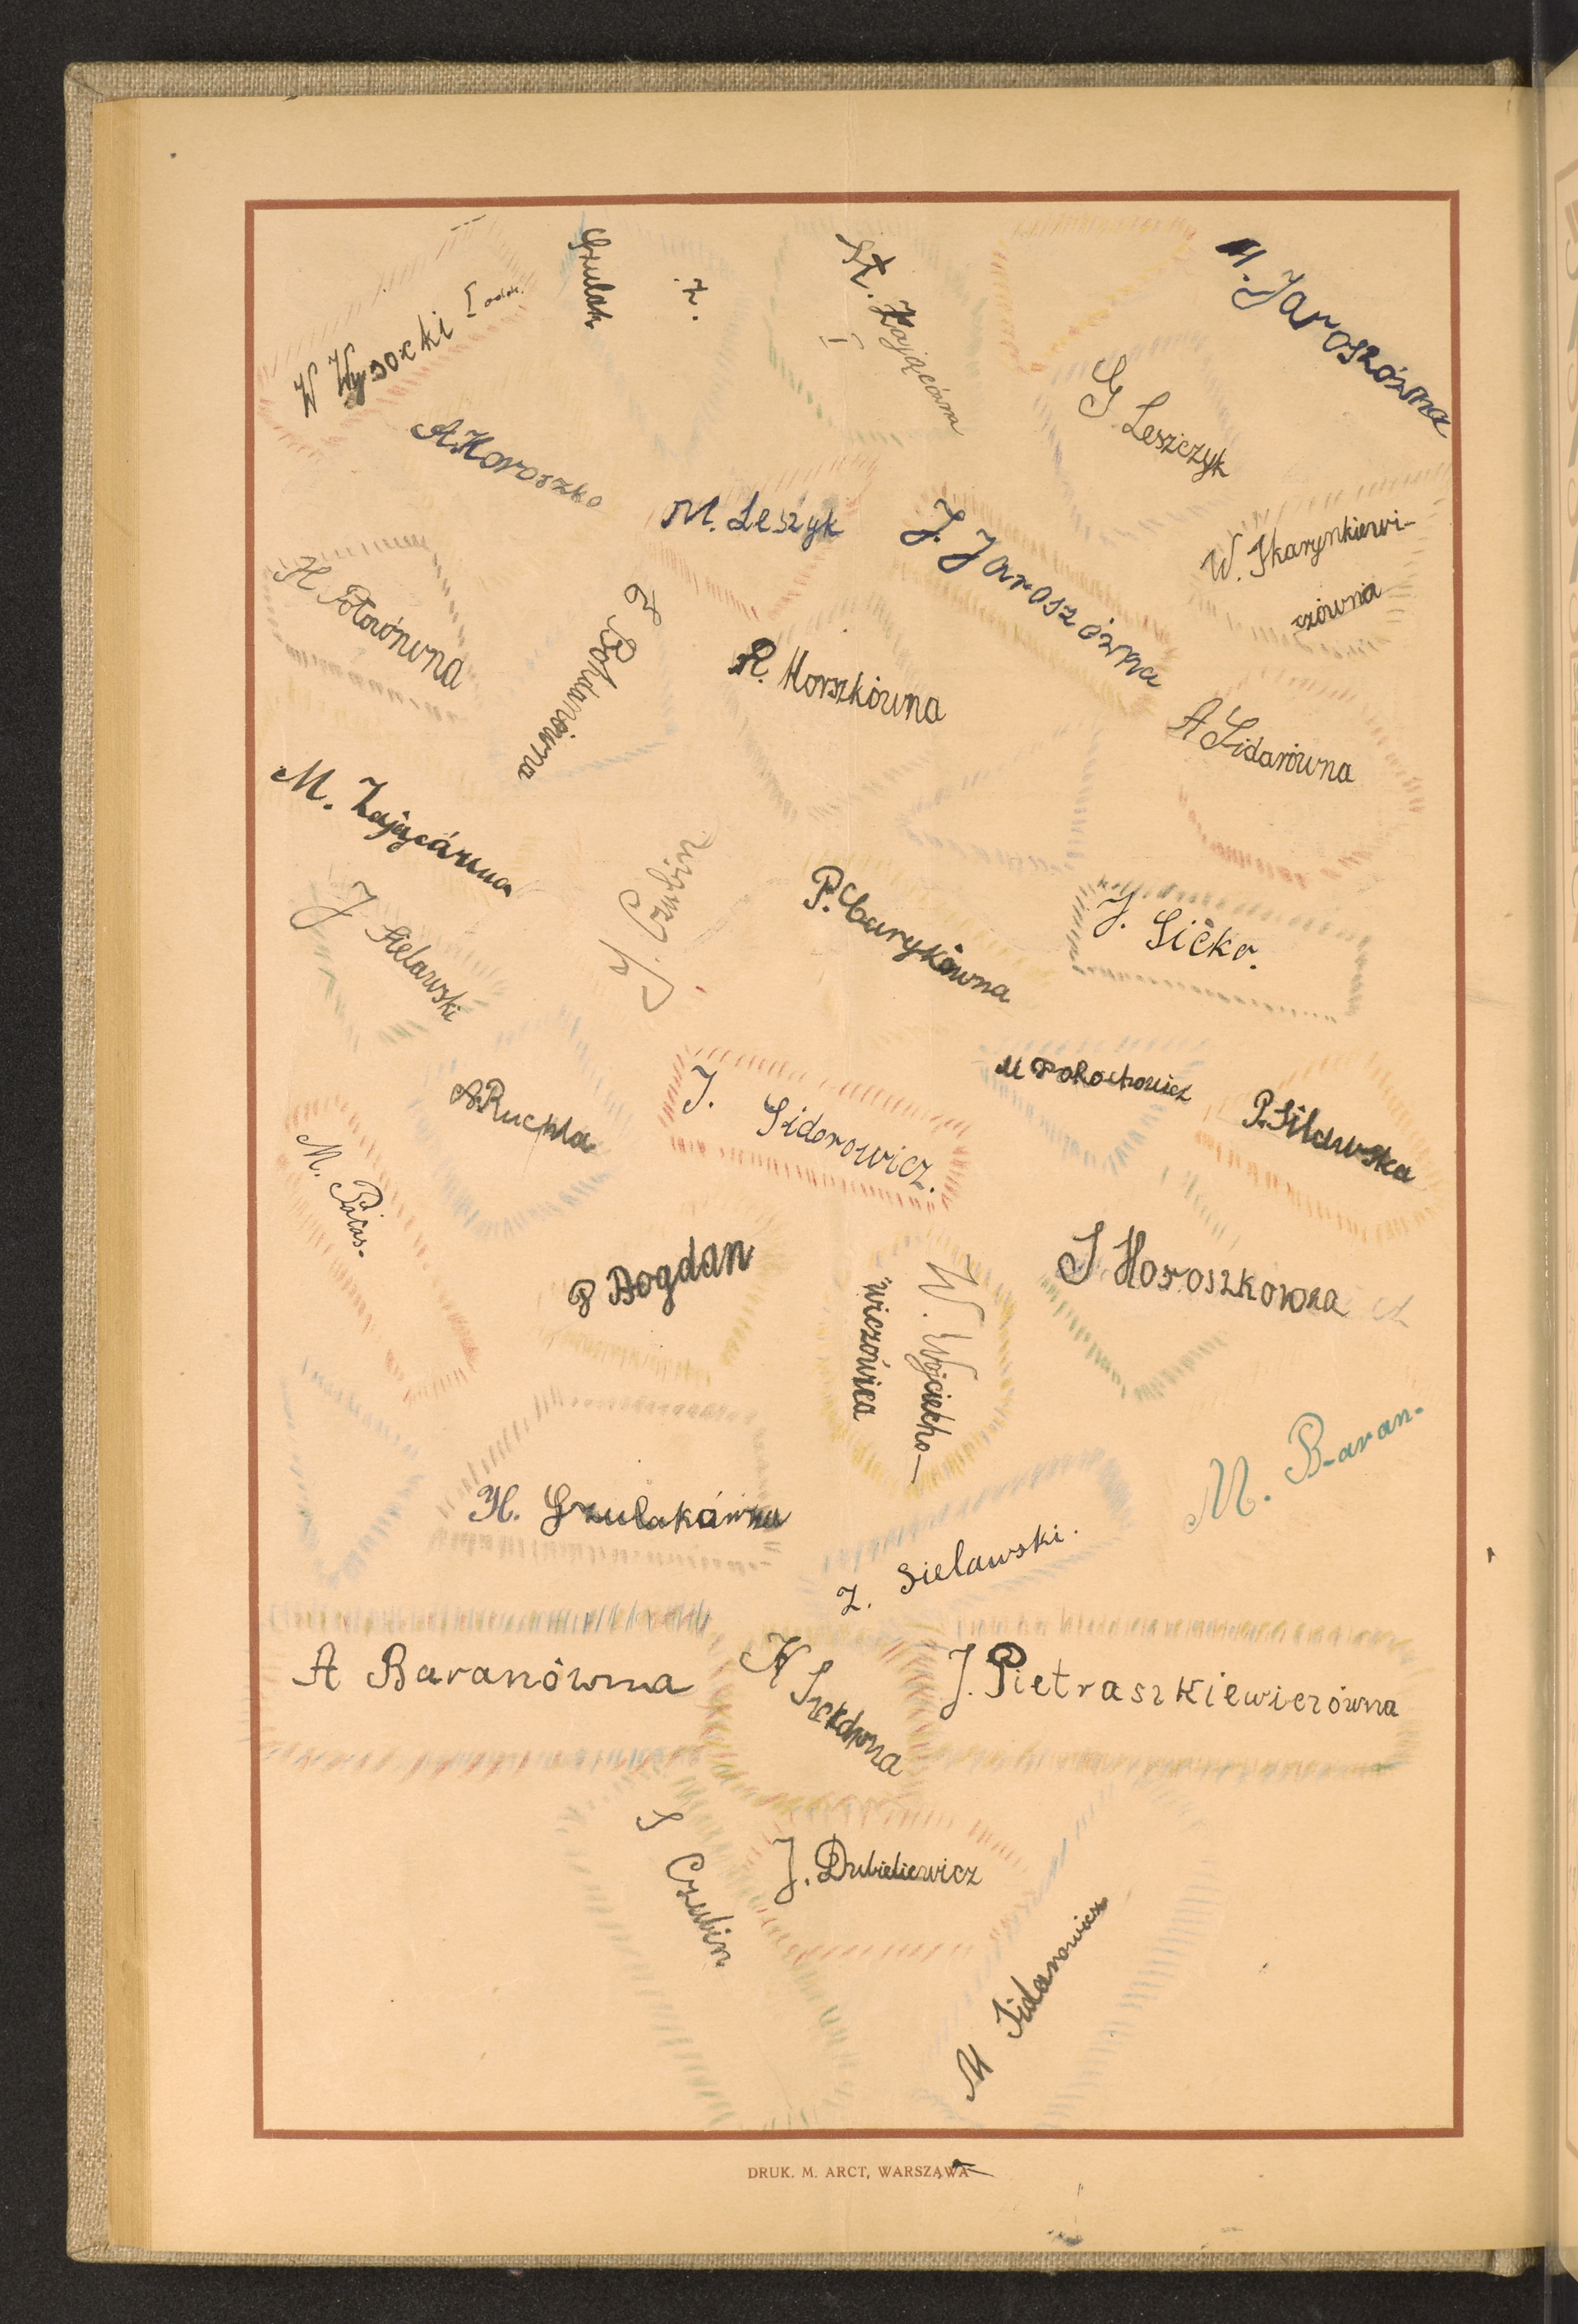 W Wysocki I oddz.
Grulak
Z.
St. Zającówna
I
M. Jaroszówna
G. Leszczyk
A. Horoszko
M. Leszyk
J. Jaroszówna
W. Skarynkiewi-
czówna
H. Potorówna
Bohdanówna
R. Horszkówna
A Sidarówna
M. Zającówna
J Sielawski
P. Cburykówna
J. Sićko.
A. Ruchla
J. Sidorowicz.
M Porochowicz
P. Silawska
M. Pacas-
P Bogdan
W. Wojciecho-
"wiczówna
S Horoszkowna
M. Baran.
H. Grulakówna
Z. Sielawski.
A Baranówna
K Szckówna
J. Pietraszkiewiczówna
S Czubin
J. Dubieliewicz
M Sidanowicz
DRUK. M. ARCT, WARSZAWA